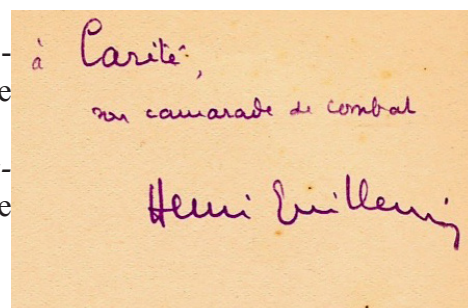 -
e
à Carité,
son camarade de combat
-
e
Henri Guillemin